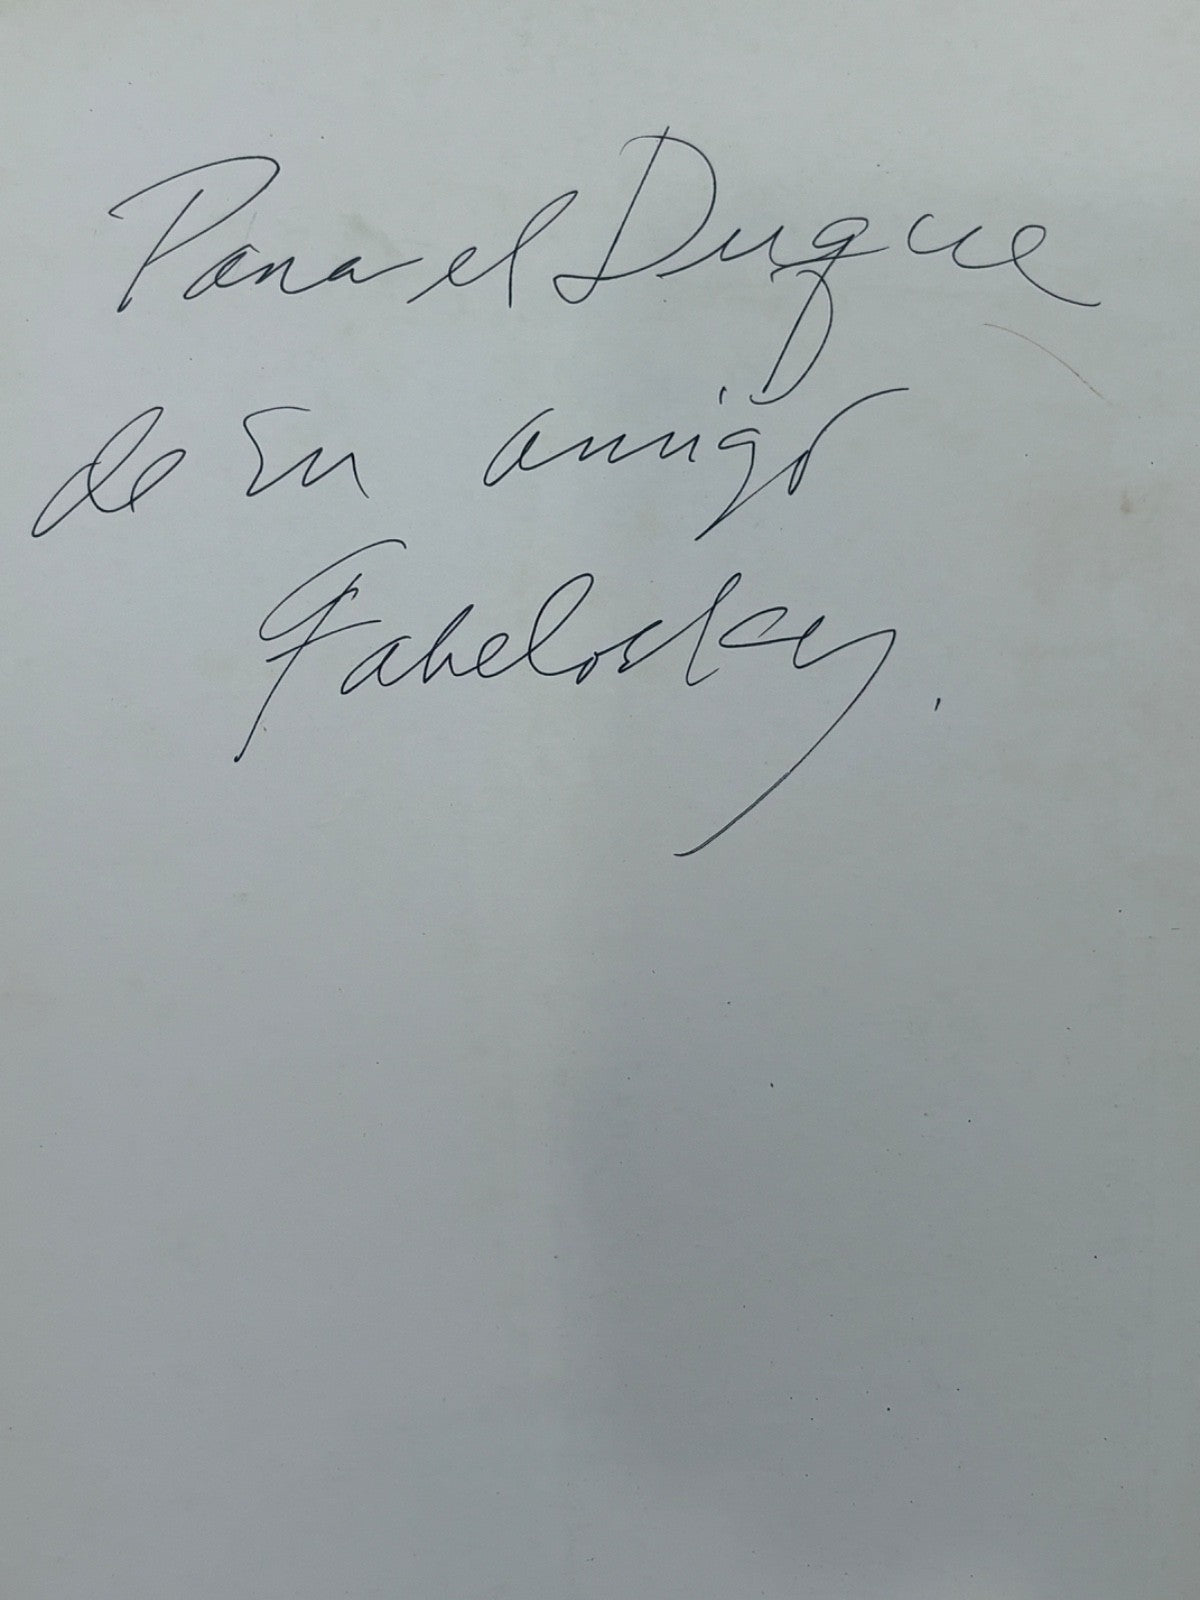 Para el Duque
de su amigo
Fabelosky.